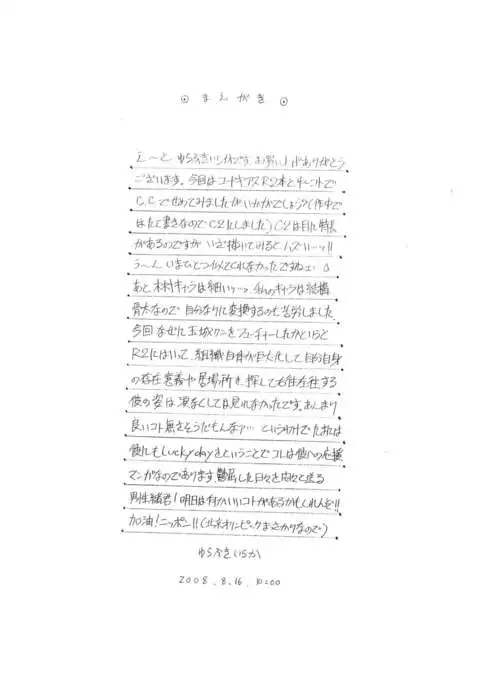 まえがき
え〜と ゆらぶきいらかです お買い上げありがとう
ございます。今回はコードギアスR2本と
C.C.でせめてみましたがいかがでしょう?(作中で
はたて書きなのでC2にしました。)C2は目に特長
があるのですが いざ描いてみると ムズいーッ!!
う〜ん いまひとつ似てくれなかったですねェ
あと、木村キャラは細いッ…
骨太なので 自分なりに変換するのも苦労しました
今回 なぜに玉城クンをフューチャーしたかというと
R2において、組織自体が巨大化して自分自身
の存在意義や居場所を探して右往左往する
彼の姿は 涙なくしては見れなかったです。あんまり
良いコト無さそうだもんなァ… というわけで たまには
彼にもLucky dayをということで コレは彼への応援
マンガなのであります。鬱屈した日々を送る
男性諸君!明日は何かいいコトがあるかもしれんぞ!!
加油!ニッポン!!(北京オリンピックまっさかりなので)
ゆらぶきいらか
2008.8.16. 10:00